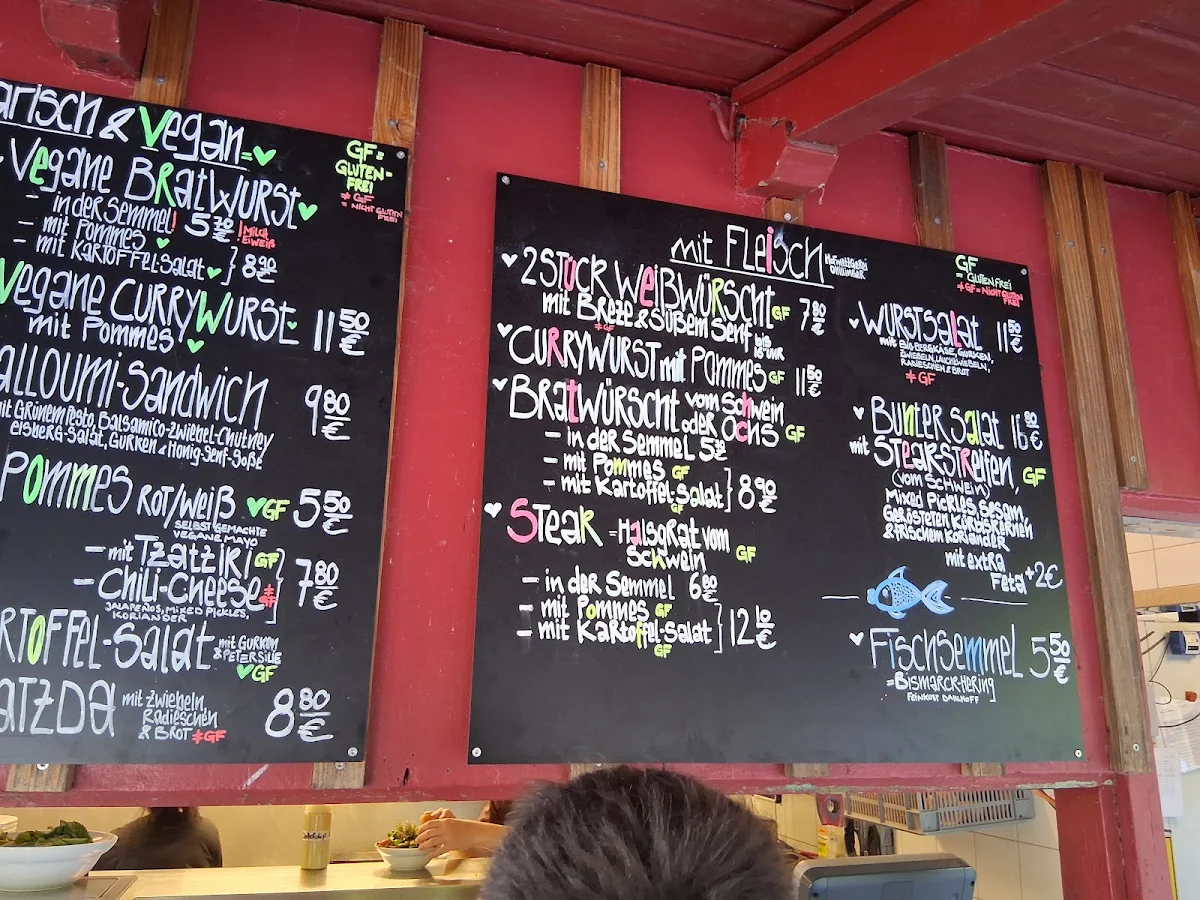 arisch & Vegan =
GF =
GLUTEN-
FREI
≠ GF
= NICHT GLUTEN
FREI
Vegane BRatWURSt
- in der Semmel! 5 20 ! MILCH
EIWEIß
- mit Pommes
- mit Kartoffel-Salat } 8 90 €
Vegane CURRYWURSt
mit Pommes 11 50 €
alloumi-Sandwich 9 80 €
mit Grünem Pesto, Balsamico-Zwiebel-Chutney
Eisberg-Salat, Gurken & Honig-Senf-Soße
Pommes ROt/WEIß GF 5 50 €
SELBST GEMACHTE
VEGANE MAYO
- mit Tzatziki GF
- Chili-Cheese ≠ GF } 7 80 €
JALAPEÑOS, MIXED PICKLES,
KORIANDER
RtOFFEL-Salat mit GURKEN
& PETERSILIE
GF
atZDA mit Zwiebeln, 8 80 €
Radieschen
& BROt ≠GF
mit FLeisch
GF
= GLUTENFREI
≠ GF = NICHT GLUTEN
FREI
2 Stück Weißwürscht GF 7 80 €
mit Breze & Süßem Senf bis
≠GF
CURRYWURST mit Pommes GF 11 50 €
BRatWÜRSCHt vom Schwein
oder Ochs GF
- in der Semmel 5 30
- mit Pommes GF
- mit Kartoffel-Salat } 8 90 €
GF
Steak = Halsgrat vom
Schwein GF
- in der Semmel 6 80 €
- mit Pommes GF
- mit Kartoffel-Salat ] 12 10 €
GF
WURStSalat 11 50 €
mit BIO-BERGKÄSE, GURKEN,
ZWIEBELN, LAUCHZWIEBELN,
RADIESCHEN & BROT
≠ GF
Bunter Salat 16 80 €
mit Steakstreifen, GF
(vom Schwein)
Mixed Pickles, Sesam,
Gerösteten Kürbiskernen
& Frischem Koriander
mit extra
Feta +2€
Fischsemmel 5 50 €
= Bismarck-Hering
FEINKOST DAHLHOFF